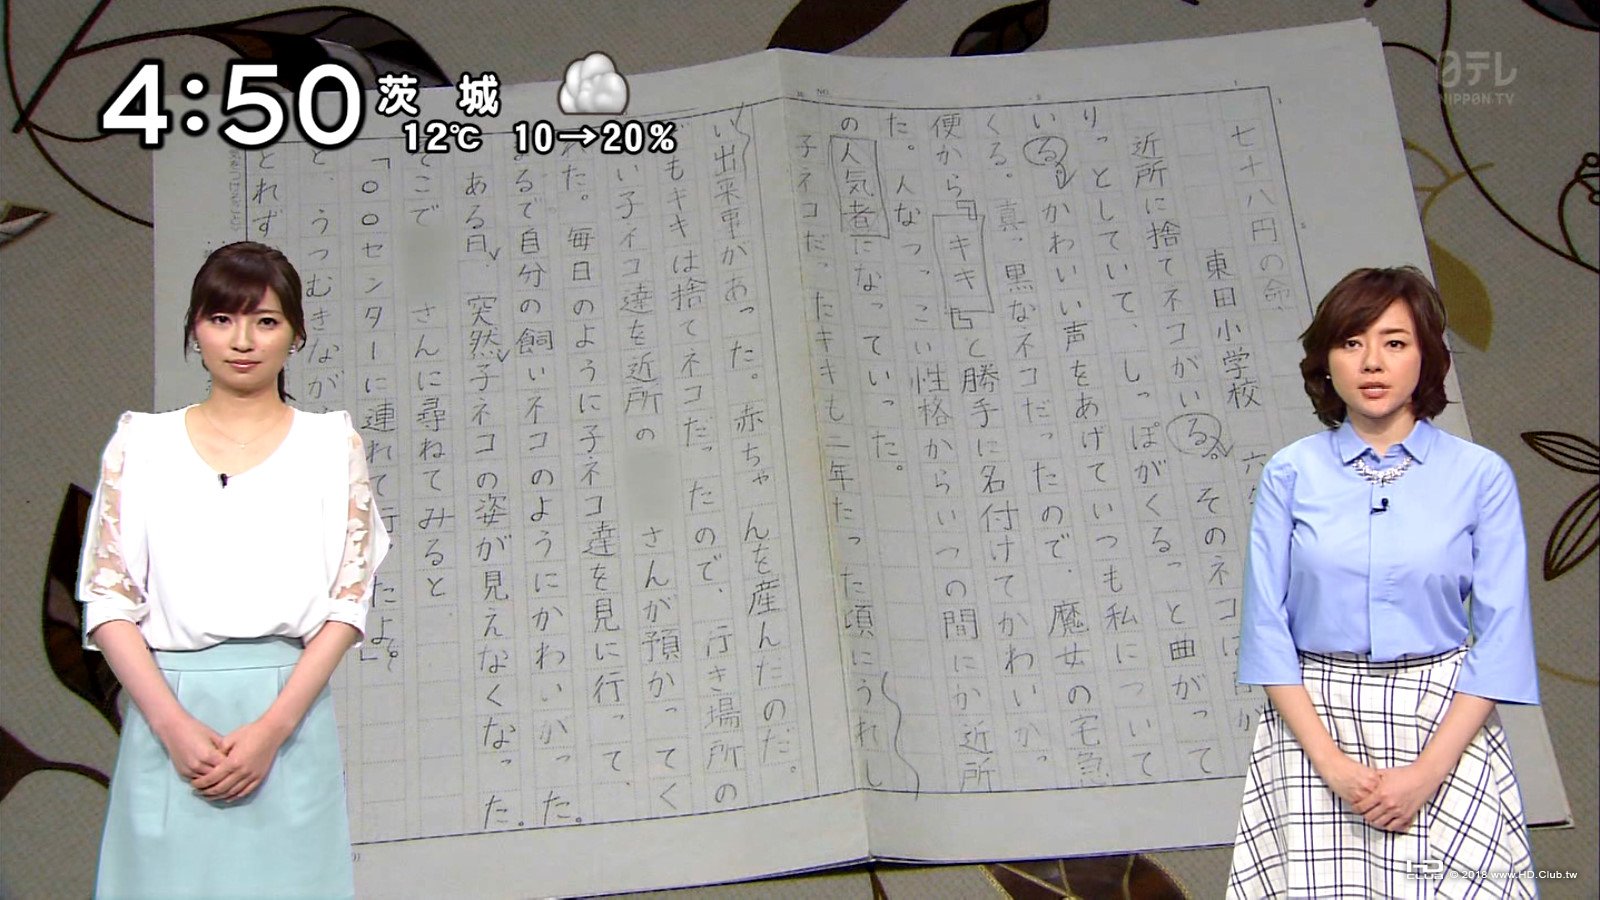 4:50
茨 城
12℃ 10→20%
日テレ
NIPPON TV
七十八円の命
東田小学校 六
近所に捨てネコがいる。そのネコは
りっとしていて、しっぽがくるっと曲がって
いる。かわいい声をあげていつも私について
くる。真っ黒なネコだったので、魔女の宅急
便から『キキ』と勝手に名付けてかわいがっ
た。人なつっこい性格からいつの間にか近所
の人気者になっていった。
子ネコだったキキも二年たった頃にうれし
い出来事があった。赤ちゃんを産んだのだ。
でもキキは捨てネコだったので、行き場所の
い子ネコ達を近所の さんが預かってく
れた。毎日のように子ネコ達を見に行って、
まるで自分の飼いネコのようにかわいがった。
ある日、突然子ネコの姿が見えなくなった。
そこで さんに尋ねてみると、
「○○センターに連れて行ったよ。」
と、うつむきながら
とれず
© 2018 www.HD.Club.tw